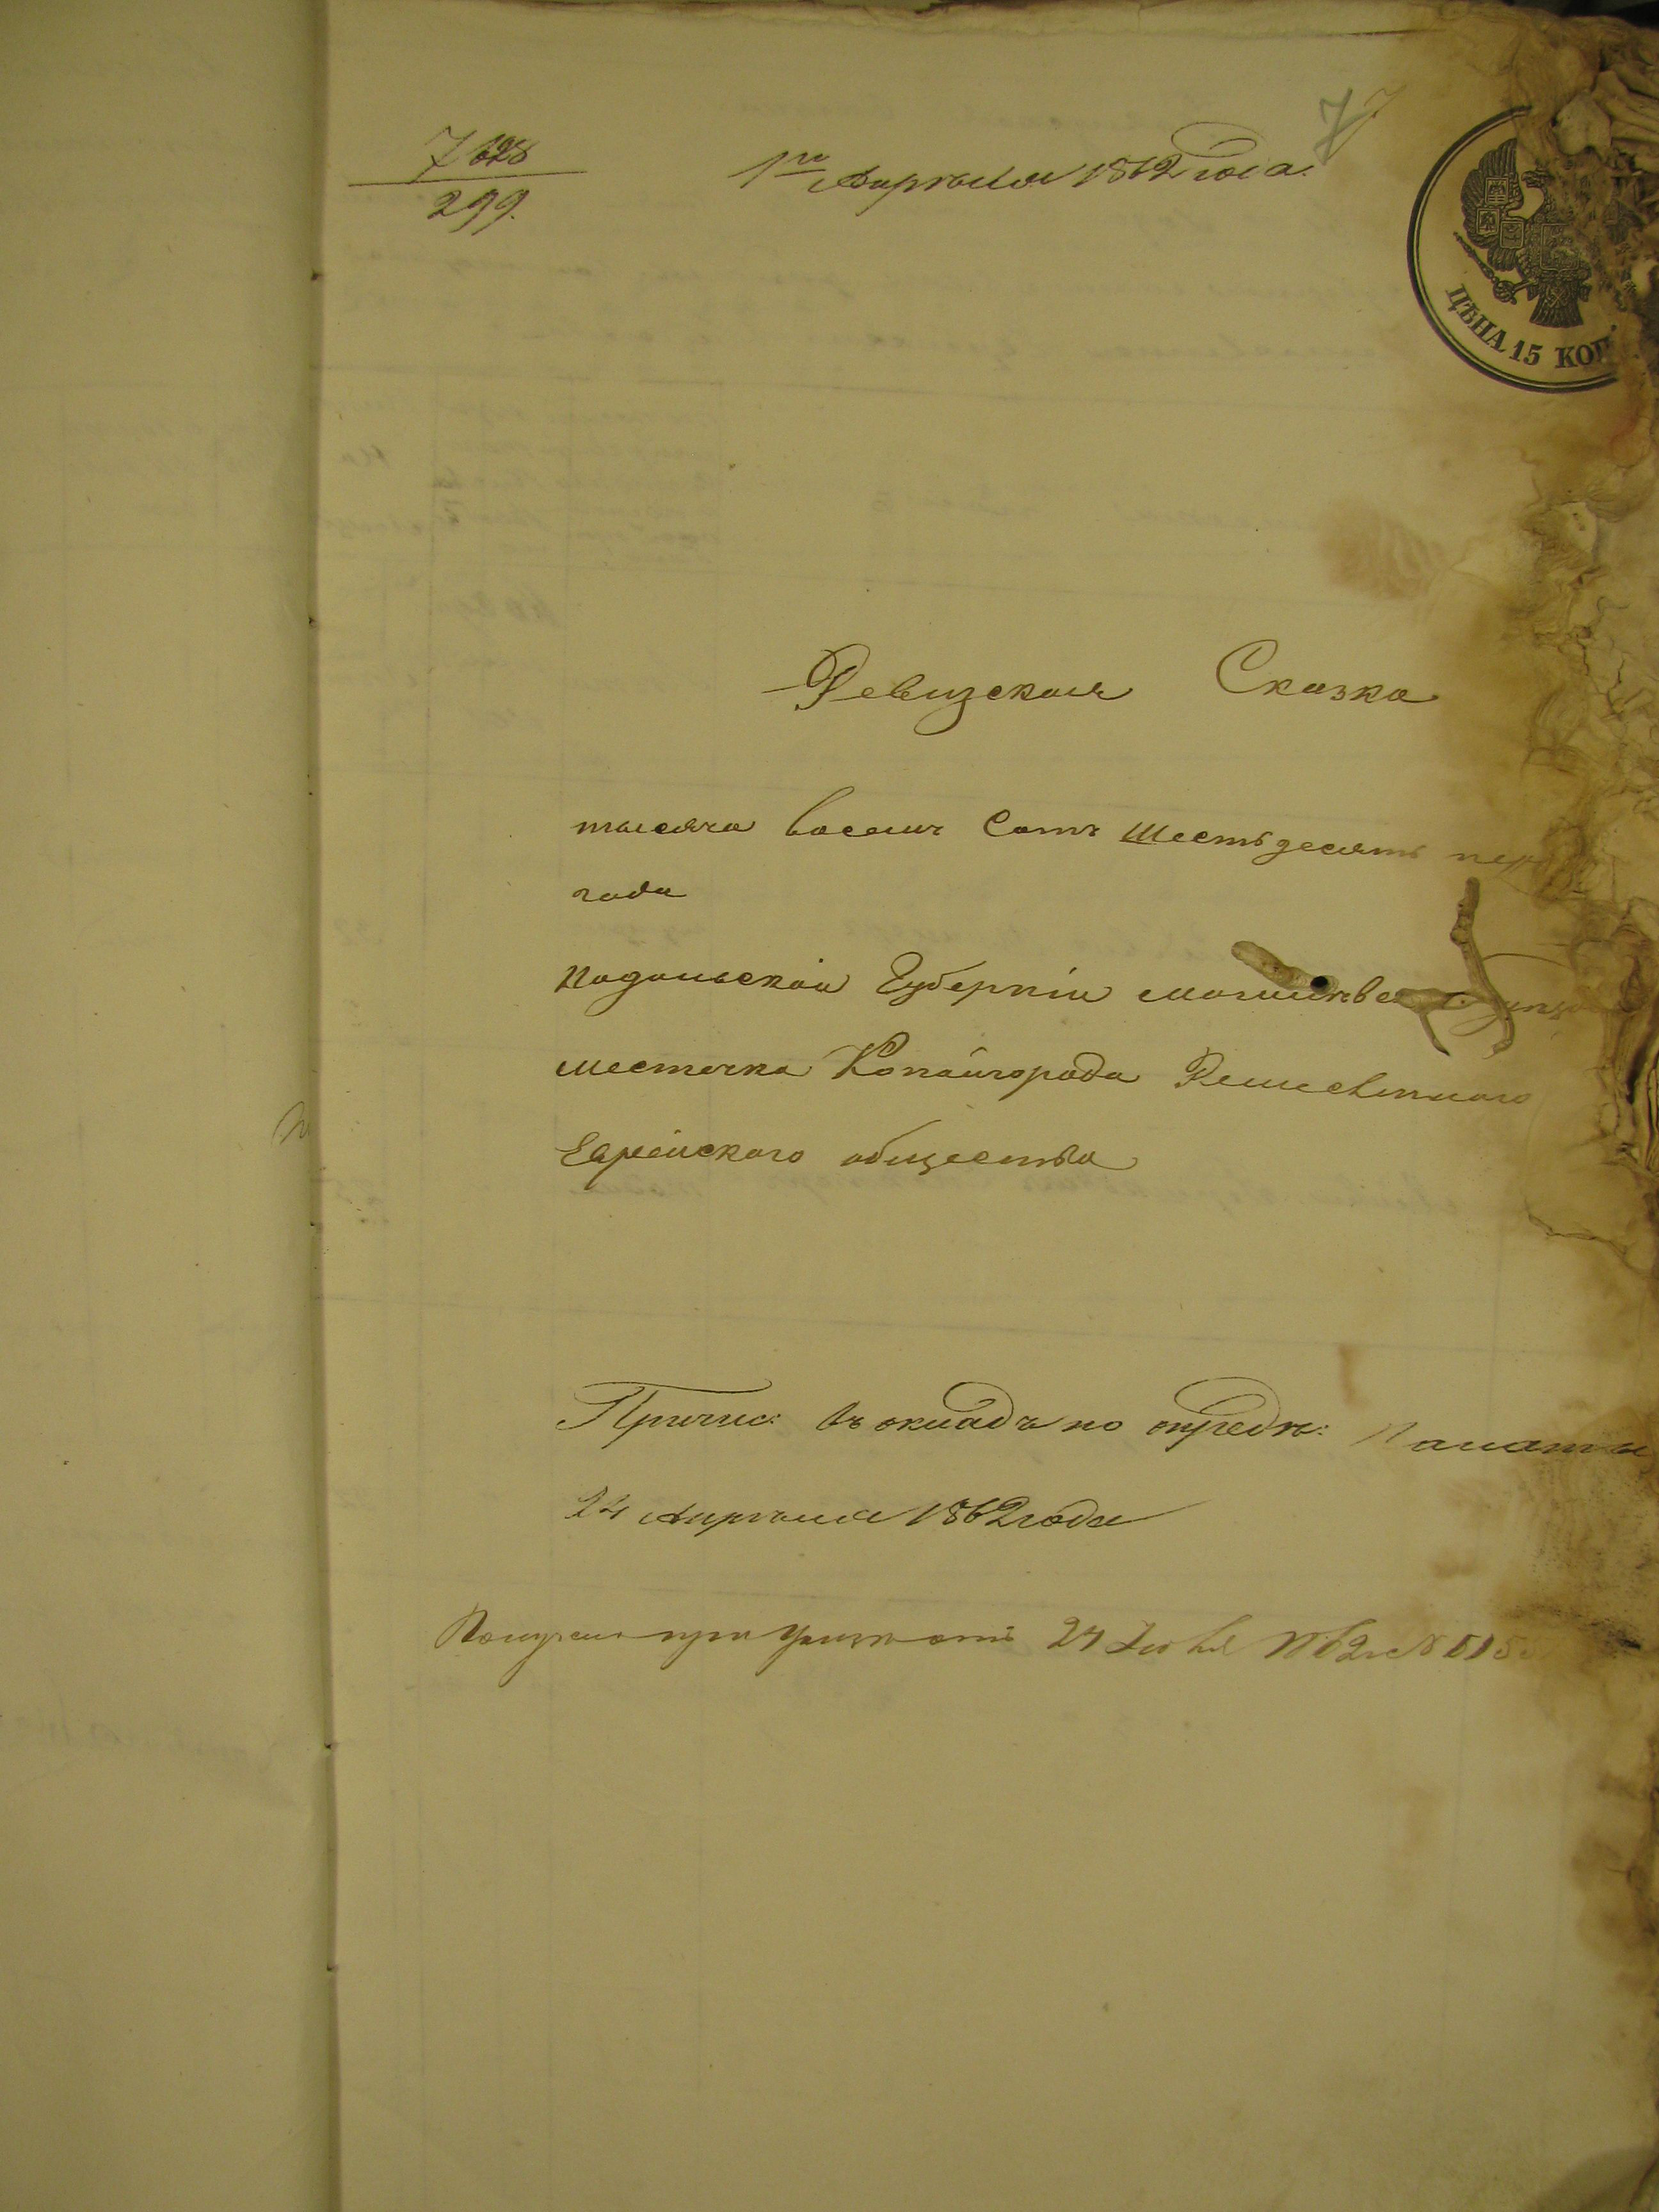 7
7628
299.
1го Апрѣля 1862 года.
ЦѢНА 15 КОП.
Ревизская Сказка
тысяча восемь Сотъ Шестьдесятъ пер
года
Подольской Губерніи
местечка Копайгорода Ремесленного
Еврейского общества
Причис: въ окладъ по опредѣ: Палаты
24 Апрѣля 1862 года
Получена при отъ 24 1862